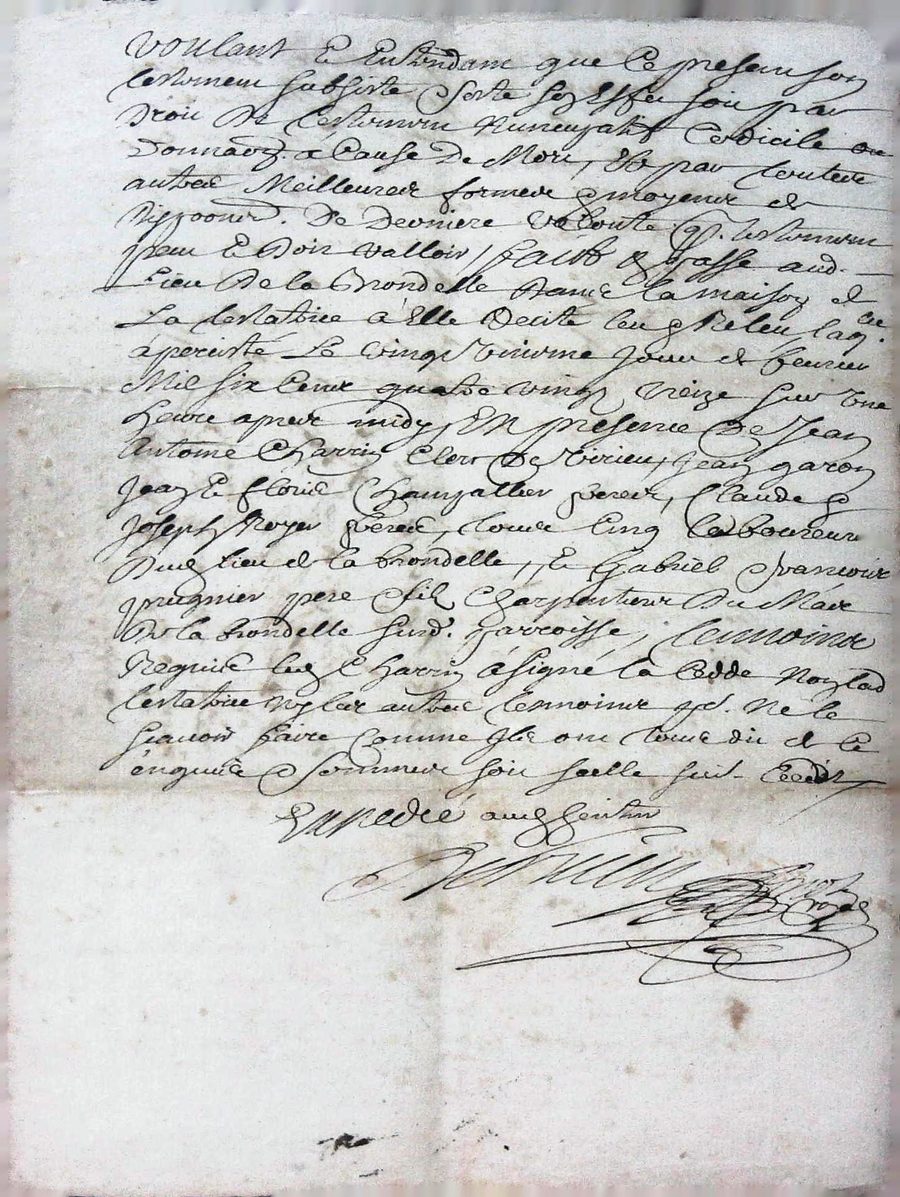 Voulant & Entendant que Ce present son
testament subsiste & sorte son Effet soit par
Droit De testament Nuncupatif Codicile ou
Donnaõn a Cause De Mort, & par toutes
autres Meilleures formes & moyens et
Disposõn De Derniere Volonté qu. testament
peut & Doit Valloir, faict & passe aud.
Lieu De la Brondelle Dans la maison de
La testatrice à Elle Leue & Releue laq.lle
à persisté Le vingt jour de fevrier
Mil six Cens quatre vingt treize sur une
heure apres midy, En presence De Jean
Antoine Charrin Clerc De Virieu, Jean garon
Jean & florie freres, Claude &
Joseph Royer freres, tous Cinq laboureurs
Dud lieu de la brondelle, & Gabriel & francois
prugnier pere & fils Charpentiers Du Mas
De la brondelle susd. parroisse, tesmoins
Requis led Charrin à signé la Cedde Non lad
testatrice ny les autres tesmoins p.r Ne le
scavoir faire Comme Ils ont tous dit de Ce
enquis & sommes soit scelle suiv. L'edit
Expedié aud